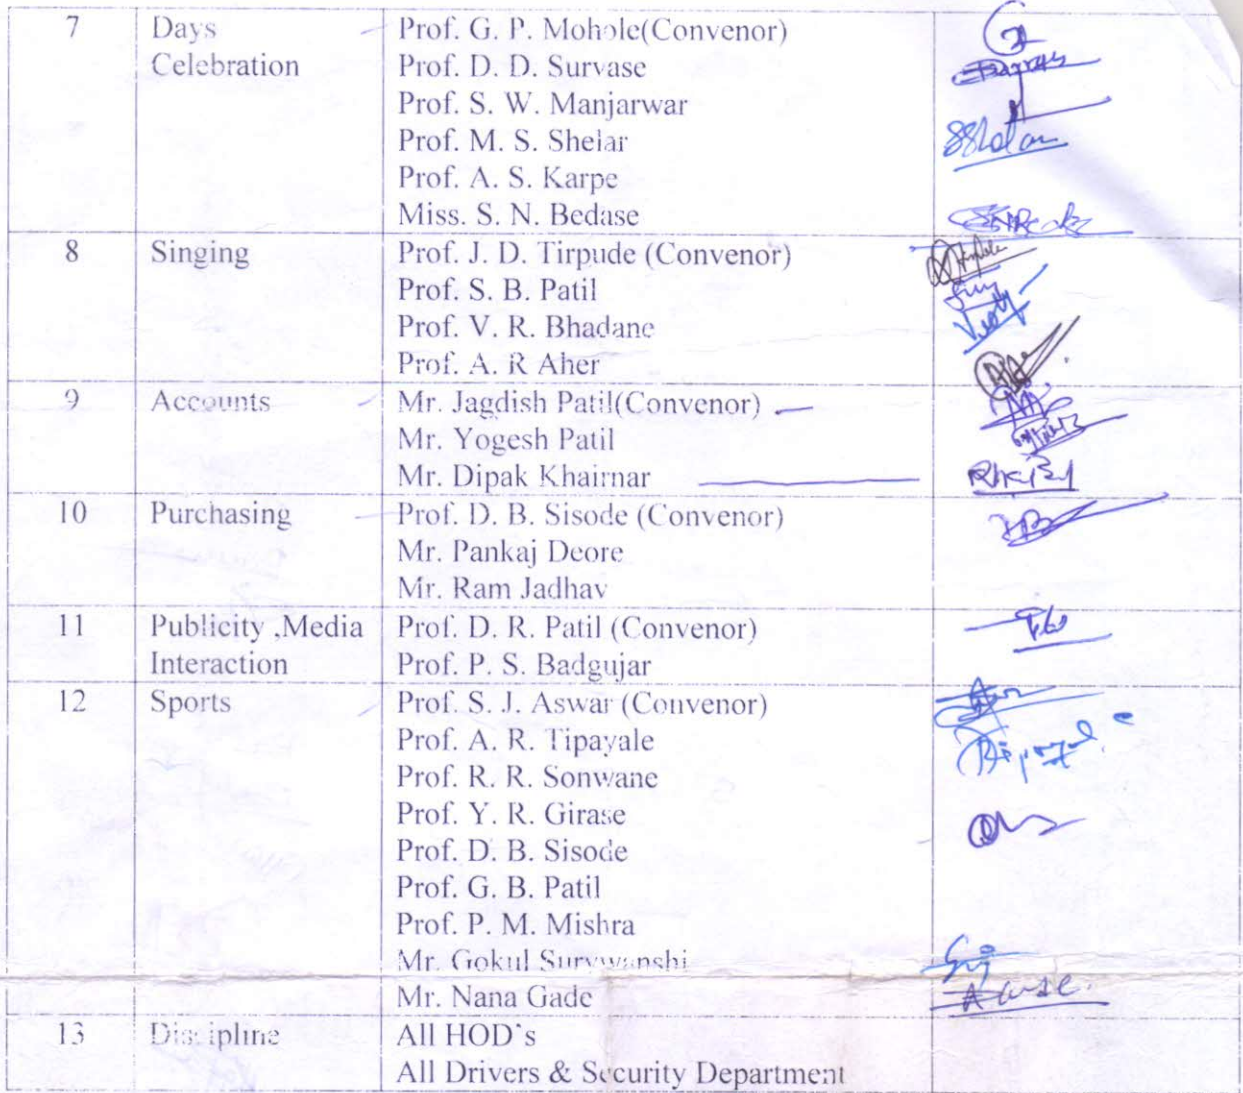 7 Days Prof. G. P. Mohole(Convenor)
Celebration Prof. D. D. Survase
Prof. S. W. Manjarwar
Prof. M. S. Shelar
Prof. A. S. Karpe
Miss. S. N. Bedase
8 Singing Prof. J. D. Tirpude (Convenor)
Prof. S. B. Patil
Prof. V. R. Bhadane
Prof. A. R Aher
9 Accounts Mr. Jagdish Patil(Convenor)
Mr. Yogesh Patil
Mr. Dipak Khairnar
10 Purchasing Prof. D. B. Sisode (Convenor)
Mr. Pankaj Deore
Mr. Ram Jadhav
11 Publicity ,Media Prof. D. R. Patil (Convenor)
Interaction Prof. P. S. Badgujar
12 Sports Prof. S. J. Aswar (Convenor)
Prof. A. R. Tipayale
Prof. R. R. Sonwane
Prof. Y. R. Girase
Prof. D. B. Sisode
Prof. G. B. Patil
Prof. P. M. Mishra
Mr. Gokul Survwanshi
Mr. Nana Gade
13 Discipline All HOD`s
All Drivers & Security Department